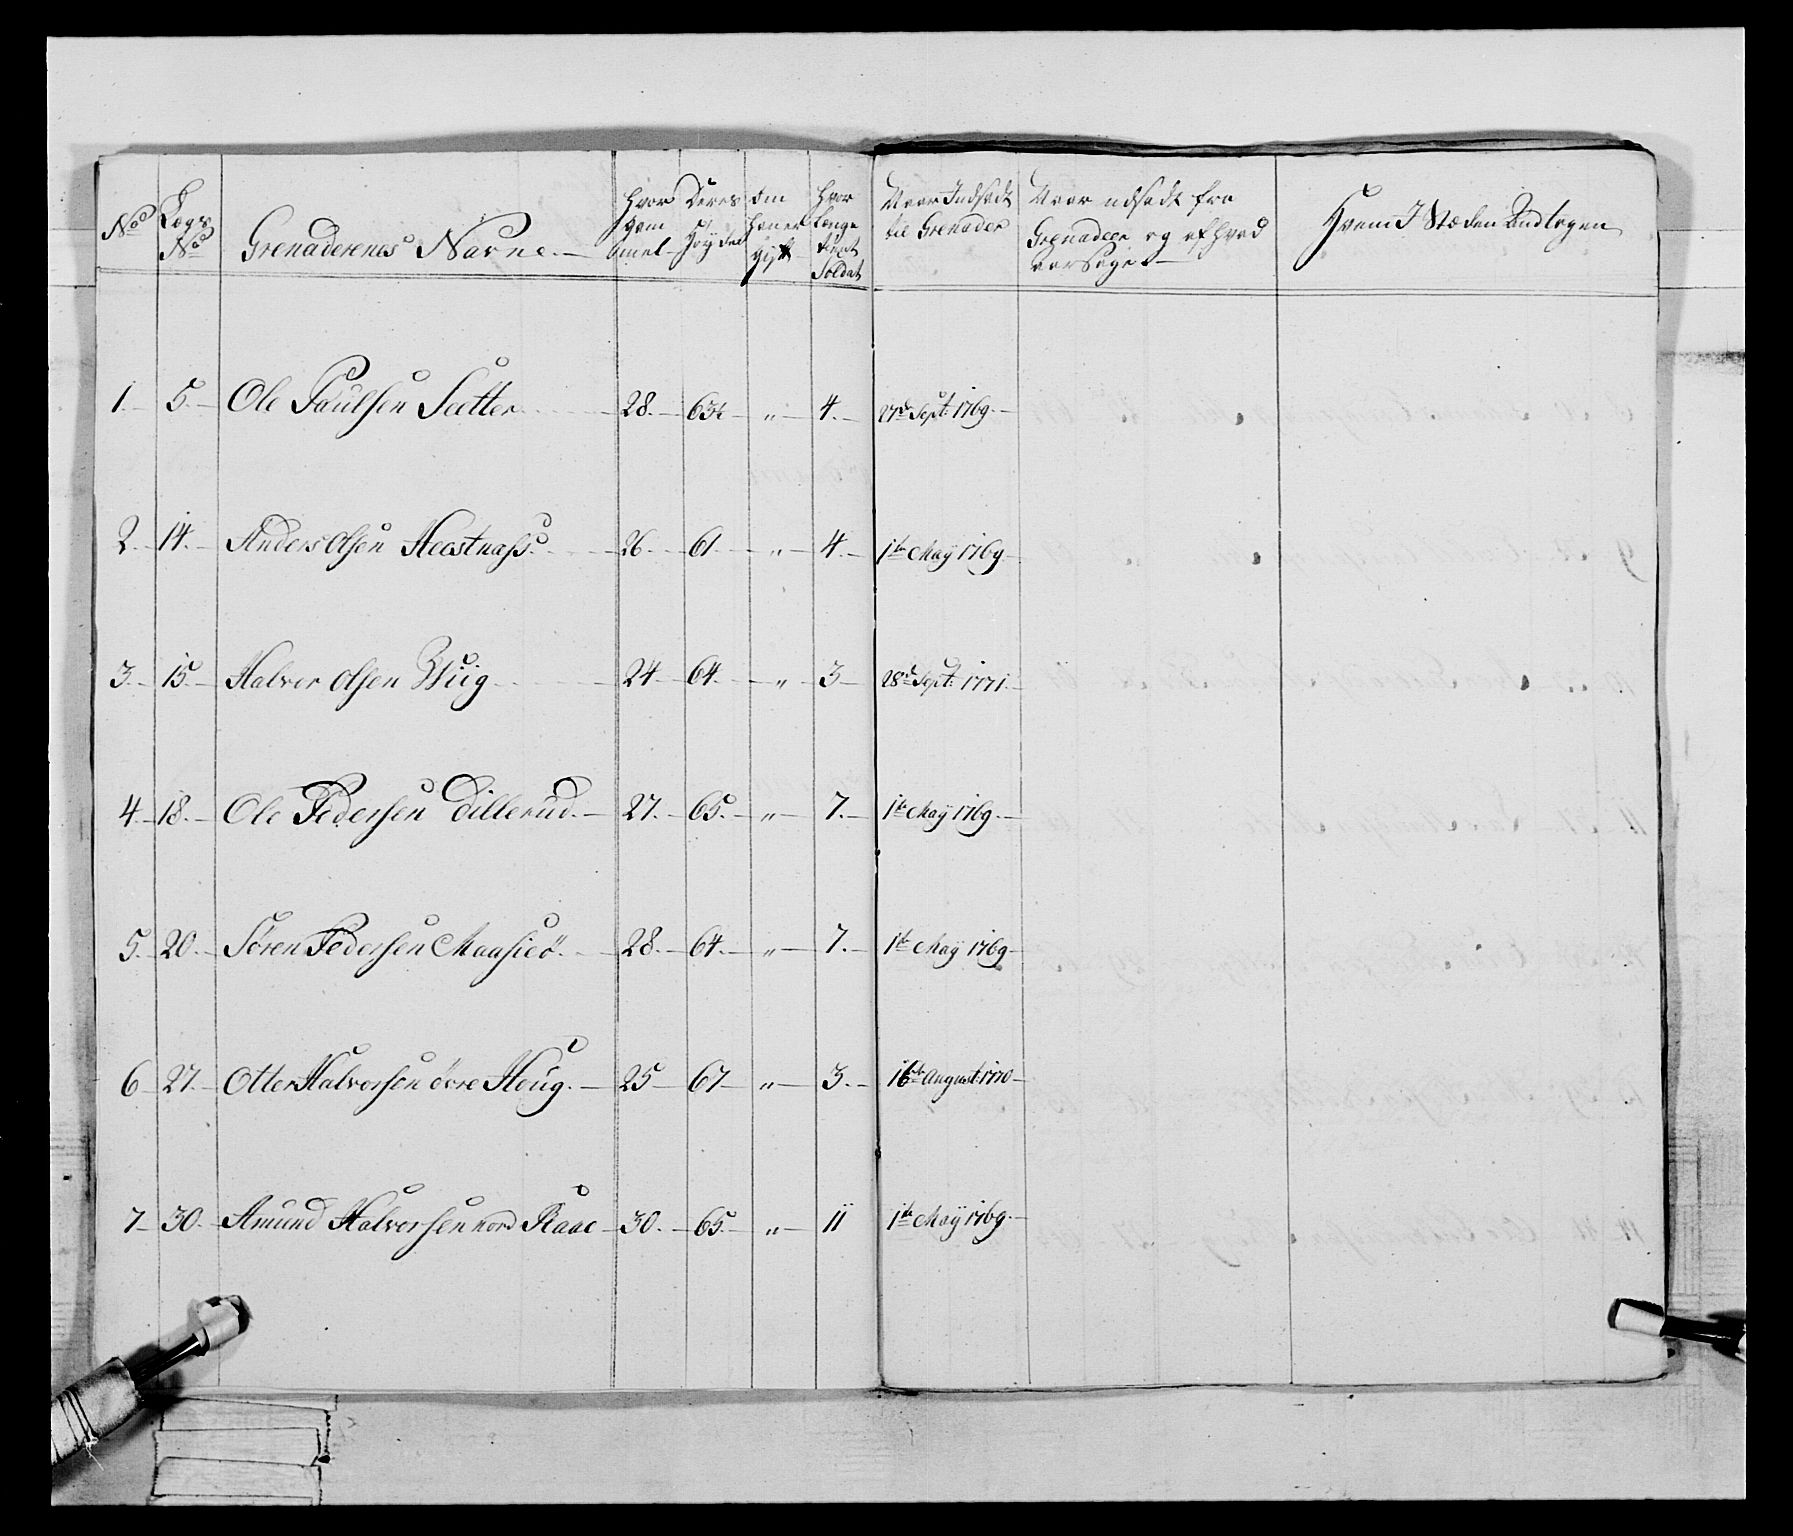 No
Lægs No
Grenaderenes Navne.
Hvor gam mel
Deres Høyde
Om han er Gift
Hvor længe tient Soldat
Naar Indsadt til Grenader
Naar udsadt fra Grenadeer og af hvad aarsage
Hvem I Stæden Andtagen
1. 5. Ole Paulsen Sætter 28. 63½ " 4. 27de Sept: 1769.
2. 14. Anders Olsen Hæstnæss. 26. 61 " 4. 1te Maÿ 1769.
3. 15. Halver Olsen Wiig 24 64. " 3 28de Sept: 1771.
4. 18. Ole Pedersen Dillerud. 27. 65. " 7. 1te Maÿ 1769.
5. 20. Søren Pedersen Maasieö. 28. 64. " 7. 1te Maÿ 1769
6 27. Otter Halversen øvre Houg. 25 67 " 3. 16de August: 1770
7 30. Amund Halvorsen nord Raae 30. 65. " 11 1te Maÿ 1769.